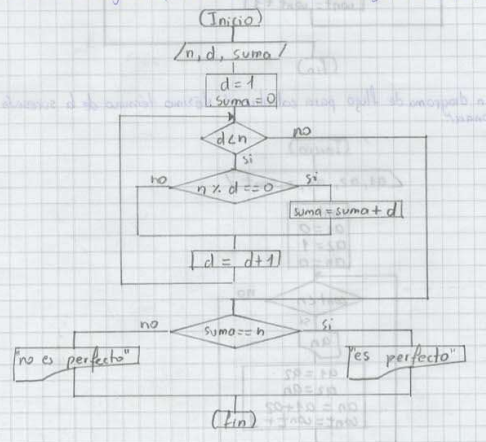 (Inicio)
n, d, suma
d = 1
suma = 0
d < n
no
si
no
n % d == 0
si
suma = suma + d
d = d+1
no
suma == n
si
"no es perfecto"
"es perfecto"
(fin)